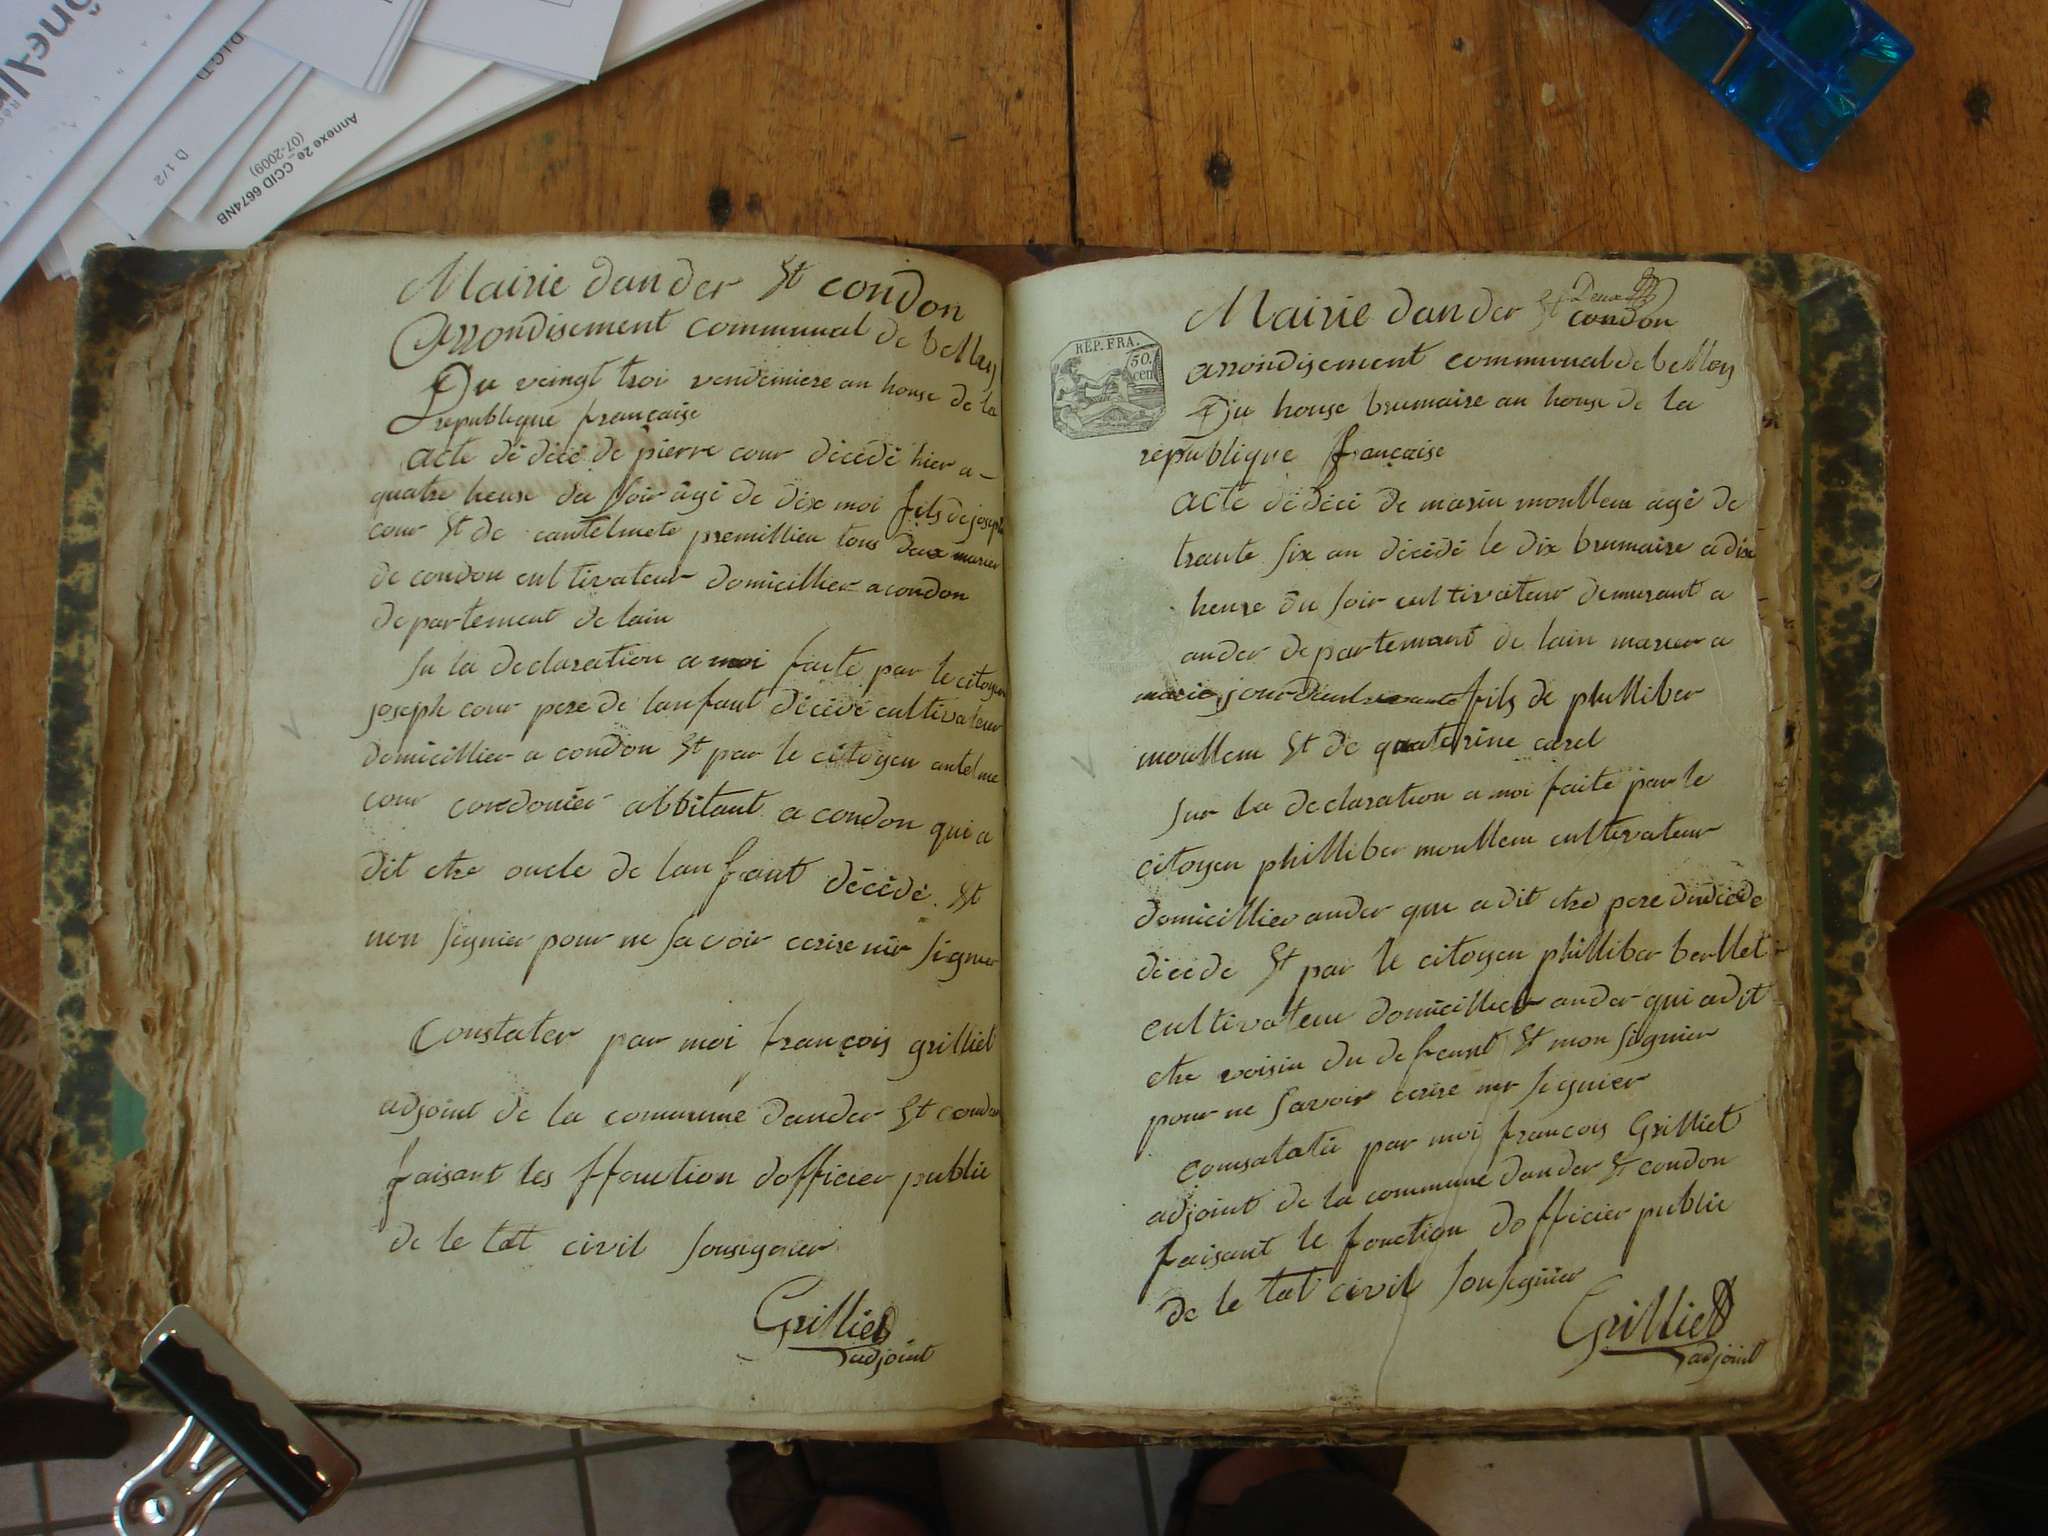 D.I.C.D
D 1/2
Annexe 2e_CCID 6674NB
(07-2009)
Mairie dander St condon
Arrondisement communal de belley
Du veingt troi vendemiere an honse de la
republique française
acte dé décé de pierre cour décédé hier a
quatre heure du soir âgé de dix moi fils de joseph
cour St de premillieu tous deux marier
de condon cultivateur domicillier a condon
departement de lain
Su la declaration a moi faite par le citoyen
joseph cour pere de lanfant décédé cultivateur
domicillier a condon St par le citoyen antelme
cour cordonier abbitant a condon qui a
dit etre oncle de lanfant décédé St
non signier pour ne savoir ecrire nir signier
Constater par moi françois grilliet
adjoint de la commune dander St condon
faisant les ffonction dofficier public
de le tat civil sousignier
Grilliet
adjoint
REP. FRA.
50.
cen
Mairie dander St condon
arrondisement communal de belley
Du honse brumaire an honse de la
republique française
acte dé décé de marin moullem agé de
trante six an décédé le dix brumaire a dix
heure du soir cultivateur demurant a
ander departemant de lain marier a
marie fils de philliber
moullem St de quaterine carel
Sur la declaration a moi faite par le
citoyen philliber moullem cultivateur
domicillier ander que a dit etre pere du décéde
décéde St par le citoyen philliber berllet
cultivateur domicillier ander qui a dit
etre voisin du defeunt St mon signier
pour ne savoir ecrire nir signier
par moi françois Grilliet
adjoint de la commune dander St condon
faisant le fonction dofficier public
de le tat civil sousignier
Grilliet
adjoint